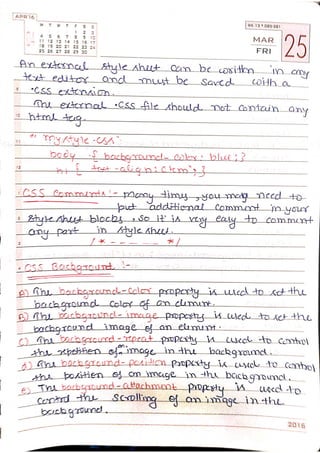 APR 16
M T W T F S S
1 2 3
4 5 6 7 8 9 10
11 12 13 14 15 16 17
18 19 20 21 22 23 24
25 26 27 28 29 30
WK 13 • 085-281
MAR
FRI
25
An external style sheet can be writtn in any
text editor and must be saved with a
.css extension.
The external .css file should not contain any
html tag.
"mystyle.css"
body { background-color: blue; }
h1 { text-align: ; }
CSS Comments :- many times, you may need to
put additional comment in your
style sheet blocks. So it is very easy to comment
any part in style sheet.
/* ------ */
CSS Background :-
a) The background-color property is used to set the
background color of an elemnt.
b) The background-image property is used to set the
background image of an elemnt.
c) The background-repeat property is used to control
the repetition of image in the background.
d) The background-position property is used to control
the position of an image in the background.
e) The background-attachment property is used to
control the scrolling of an image in the
background.
2016